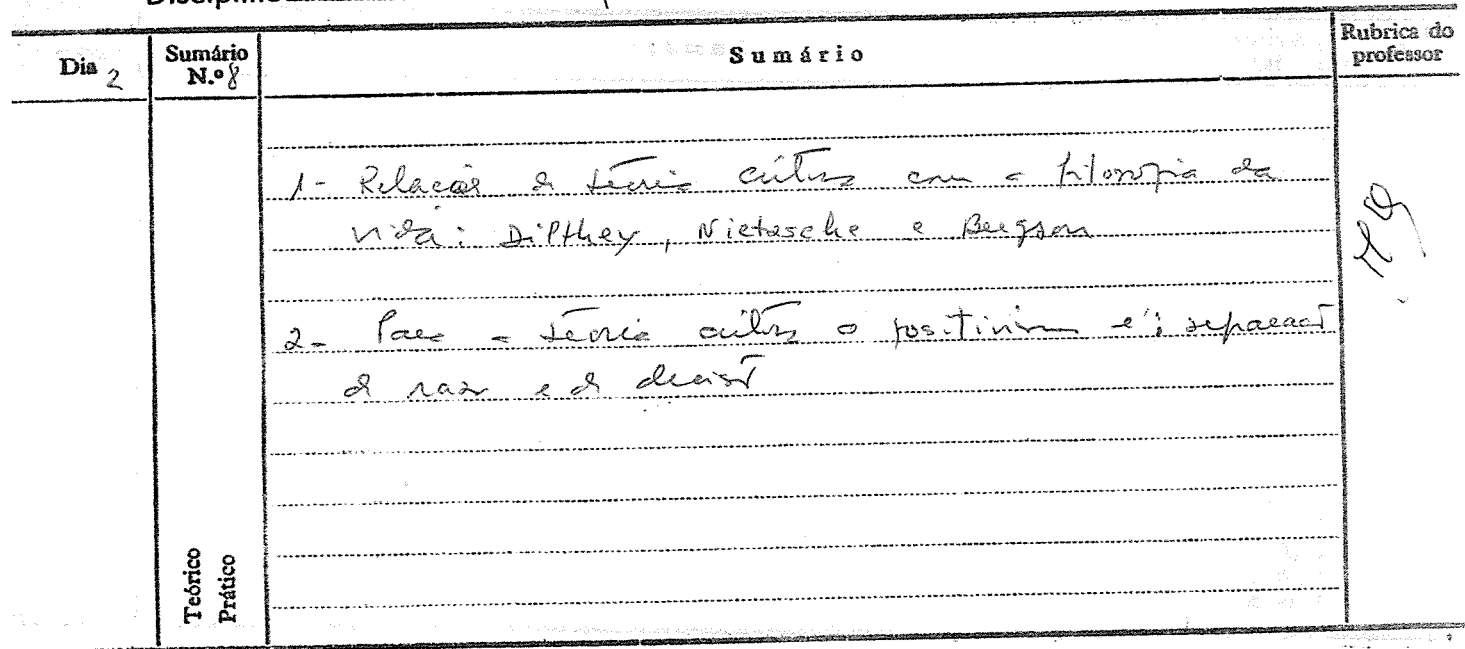 Disciplina
Dia 2
Sumário N.º 8
Sumário
Rubrica do professor
1- Relação da teoria crítica com a filosofia da
vida: Dilthey, Nietzsche e Bergson
2- Para a teoria crítica o positivismo é: separação
da razão e da decisão
Teórico
Prático